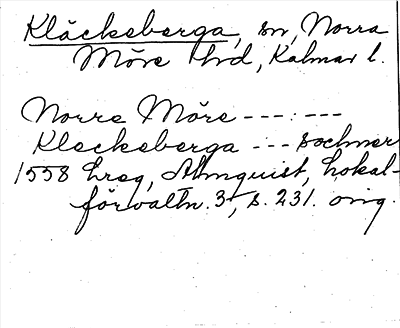 Kläckeberga, sn, Norra
Möre hrd, Kalmar l.
Norre Möre --- : ---
Kleckeberga --- sochner
1558 hreg, Almquist, Lokal-
förvaltn. 3, s. 231. orig.